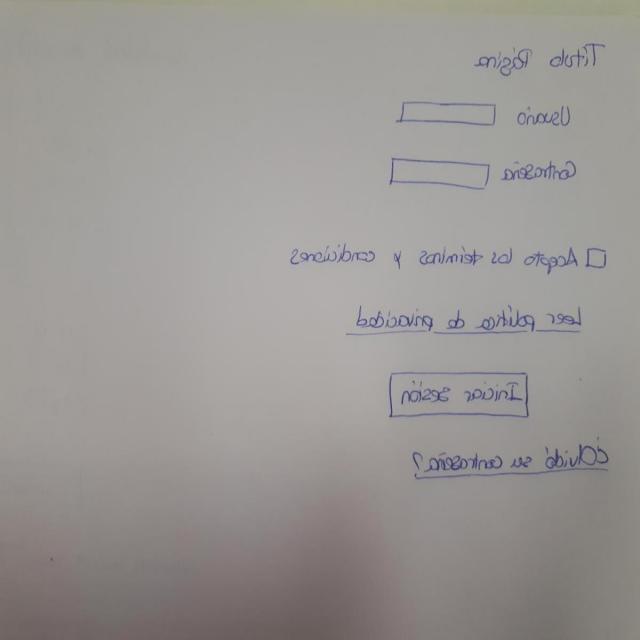 Título Página
Usuario
Contraseña
Acepto los términos y condiciones
Leer política de privacidad
Iniciar sesión
¿Olvidó su contraseña?